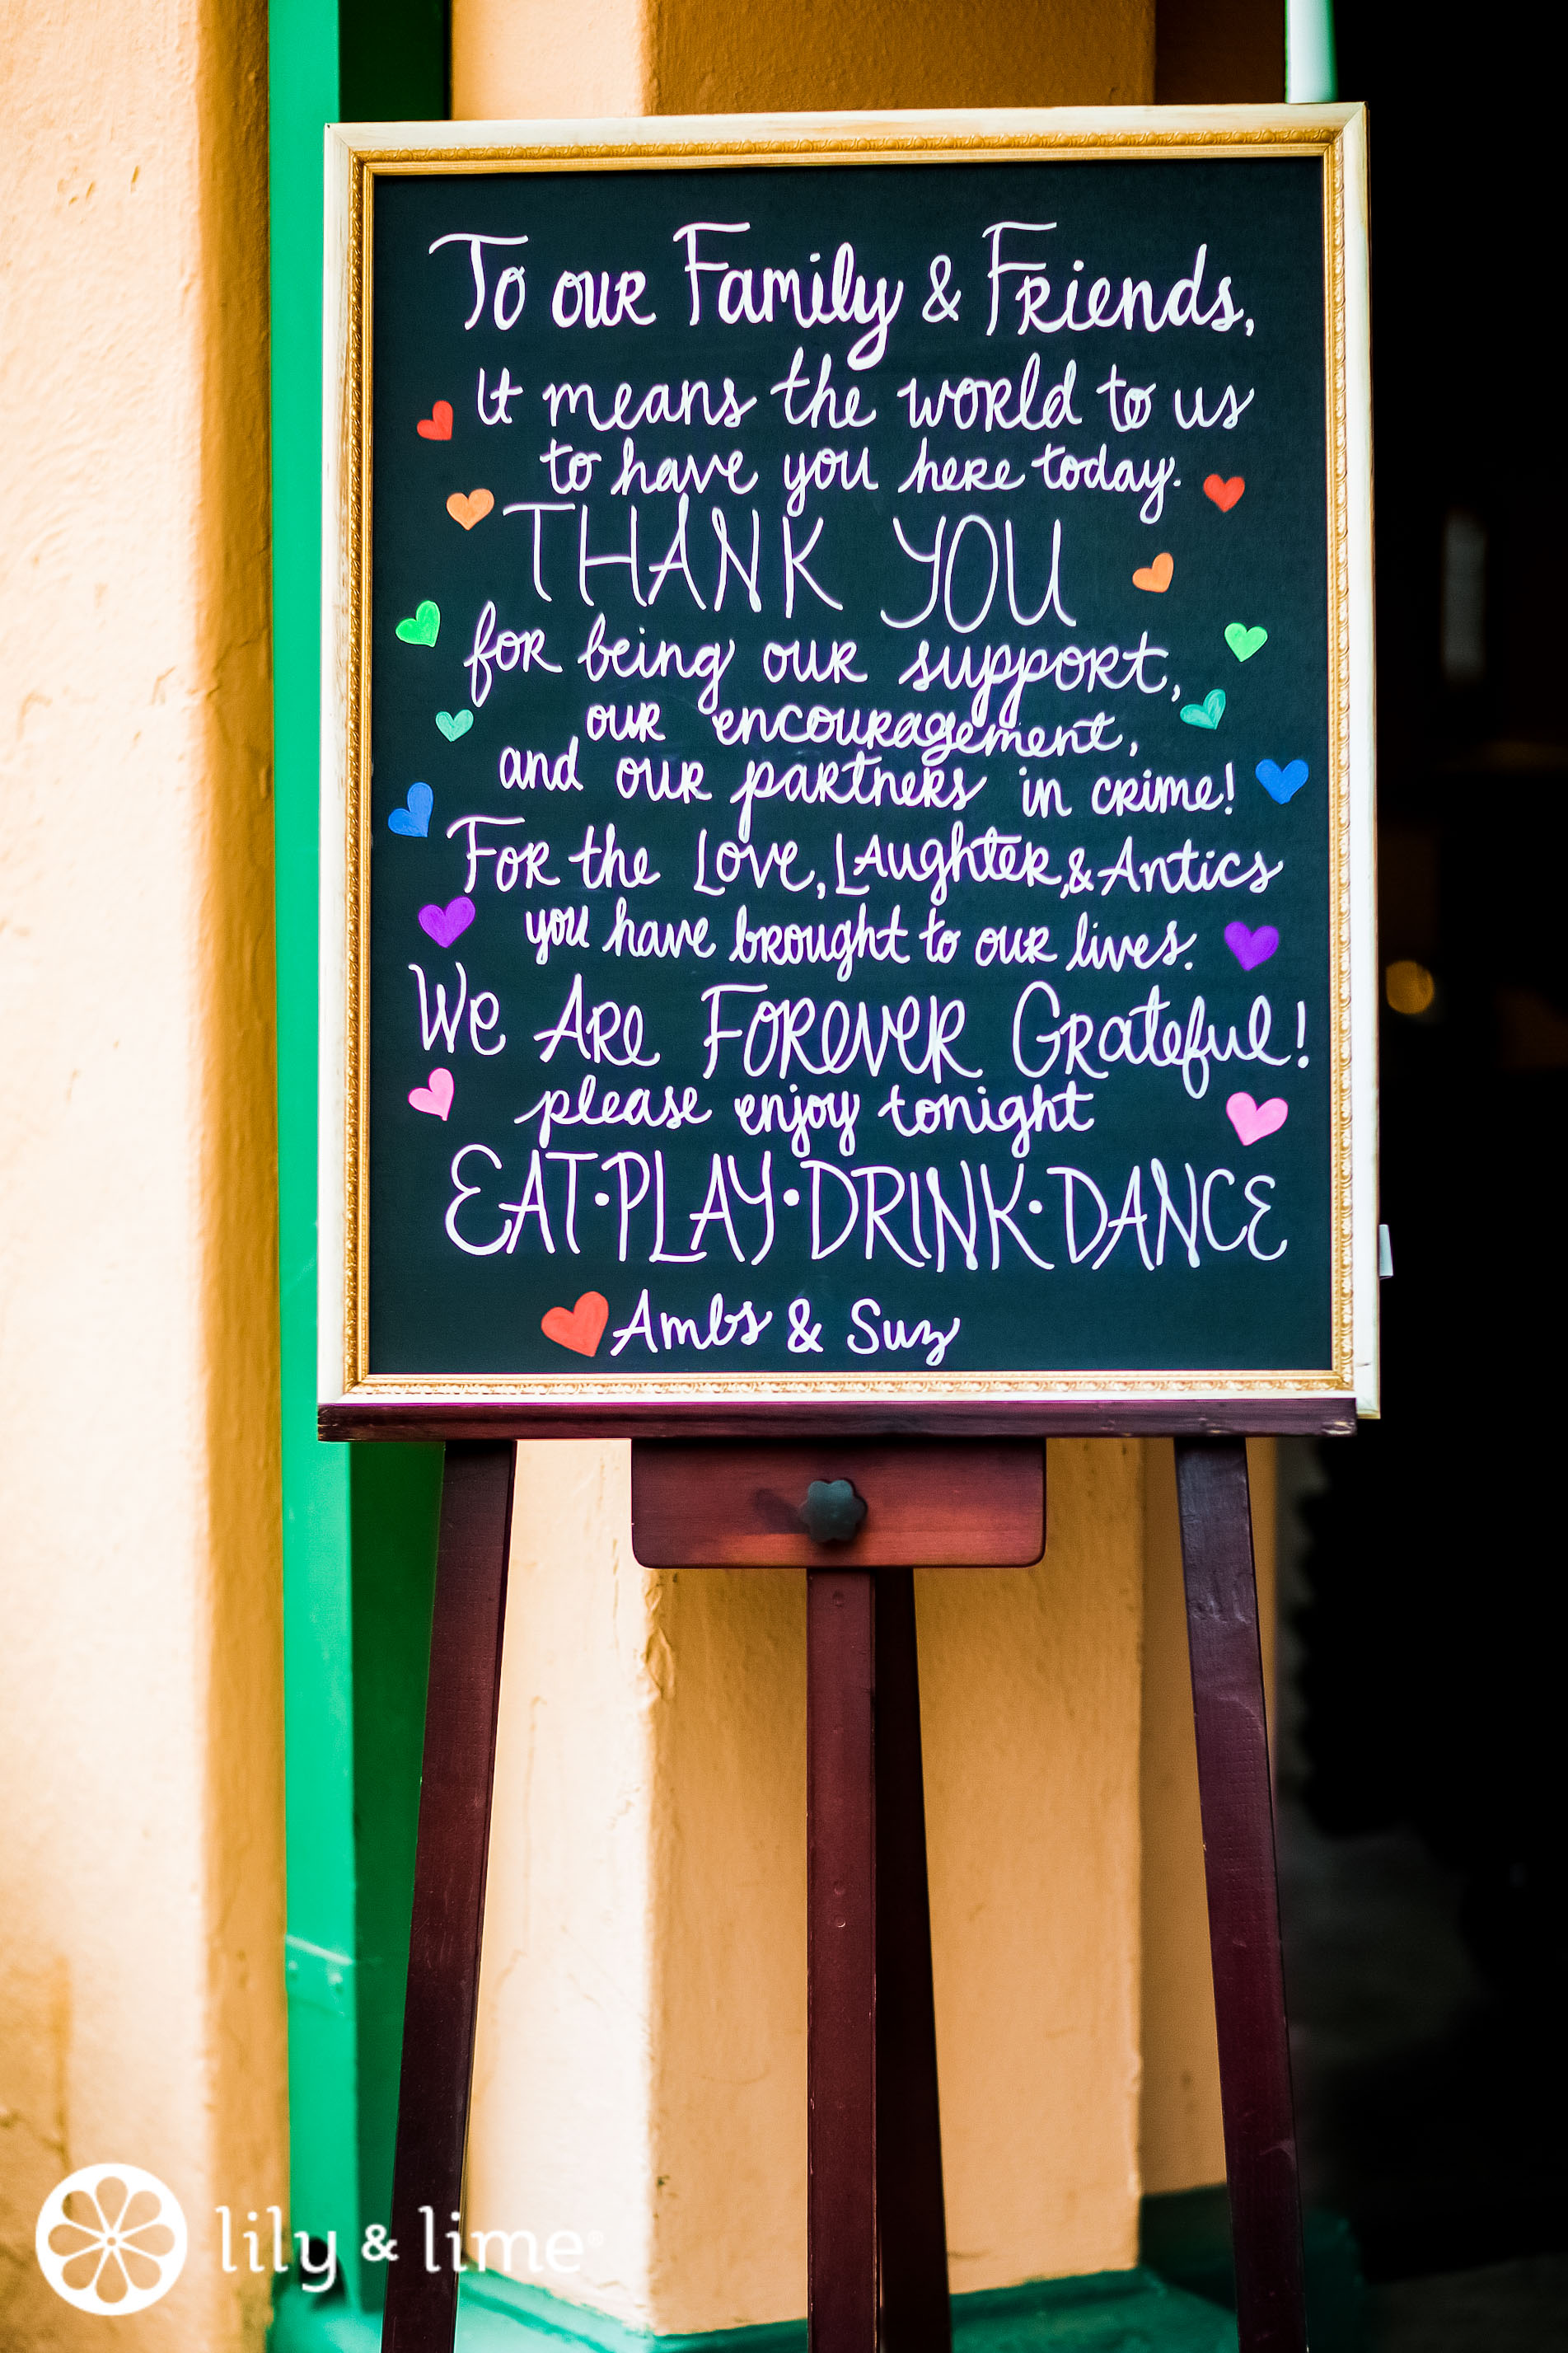 To our Family & Friends,
it means the world to us
to have you here today.
THANK YOU
for being our support,
our encouragement,
and our partners in crime!
For the Love, Laughter, & Antics
you have brought to our lives.
We Are Forever Grateful!
please enjoy tonight
EAT·PLAY·DRINK·DANCE
Ambs & Suz
lily & lime®